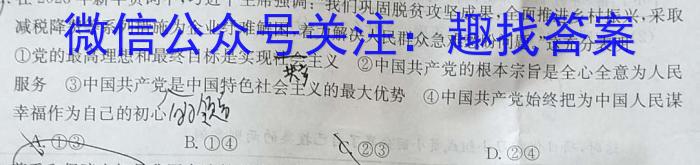 在2020年新年贺词中,习近平主席强调:我们巩固脱贫攻坚成果,全面推进乡村振兴,采取
减税降费等系列措施为企业纾难解困,着力解决人民群众急难愁盼
微信公众号关注:趣找答案
①党的最高理想和最终目标是实现社会主义 ②中国共产党的根本宗旨是全心全意为人民
共产
服务 ③中国共产党是中国特色社会主义的最大优势 ④中国共产党始终把为中国人民谋
的领导
幸福作为自己的初心
A.①③ B.①④ C.②③ D.②④